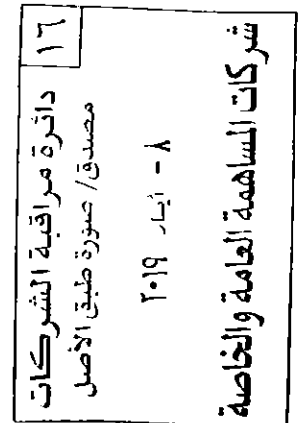 ١٦
دائرة مراقبة الشركات
مصدق / صورة طبق الأصل
٨ - أيار ٢٠١٩
شركات المساهمة العامة والخاصة